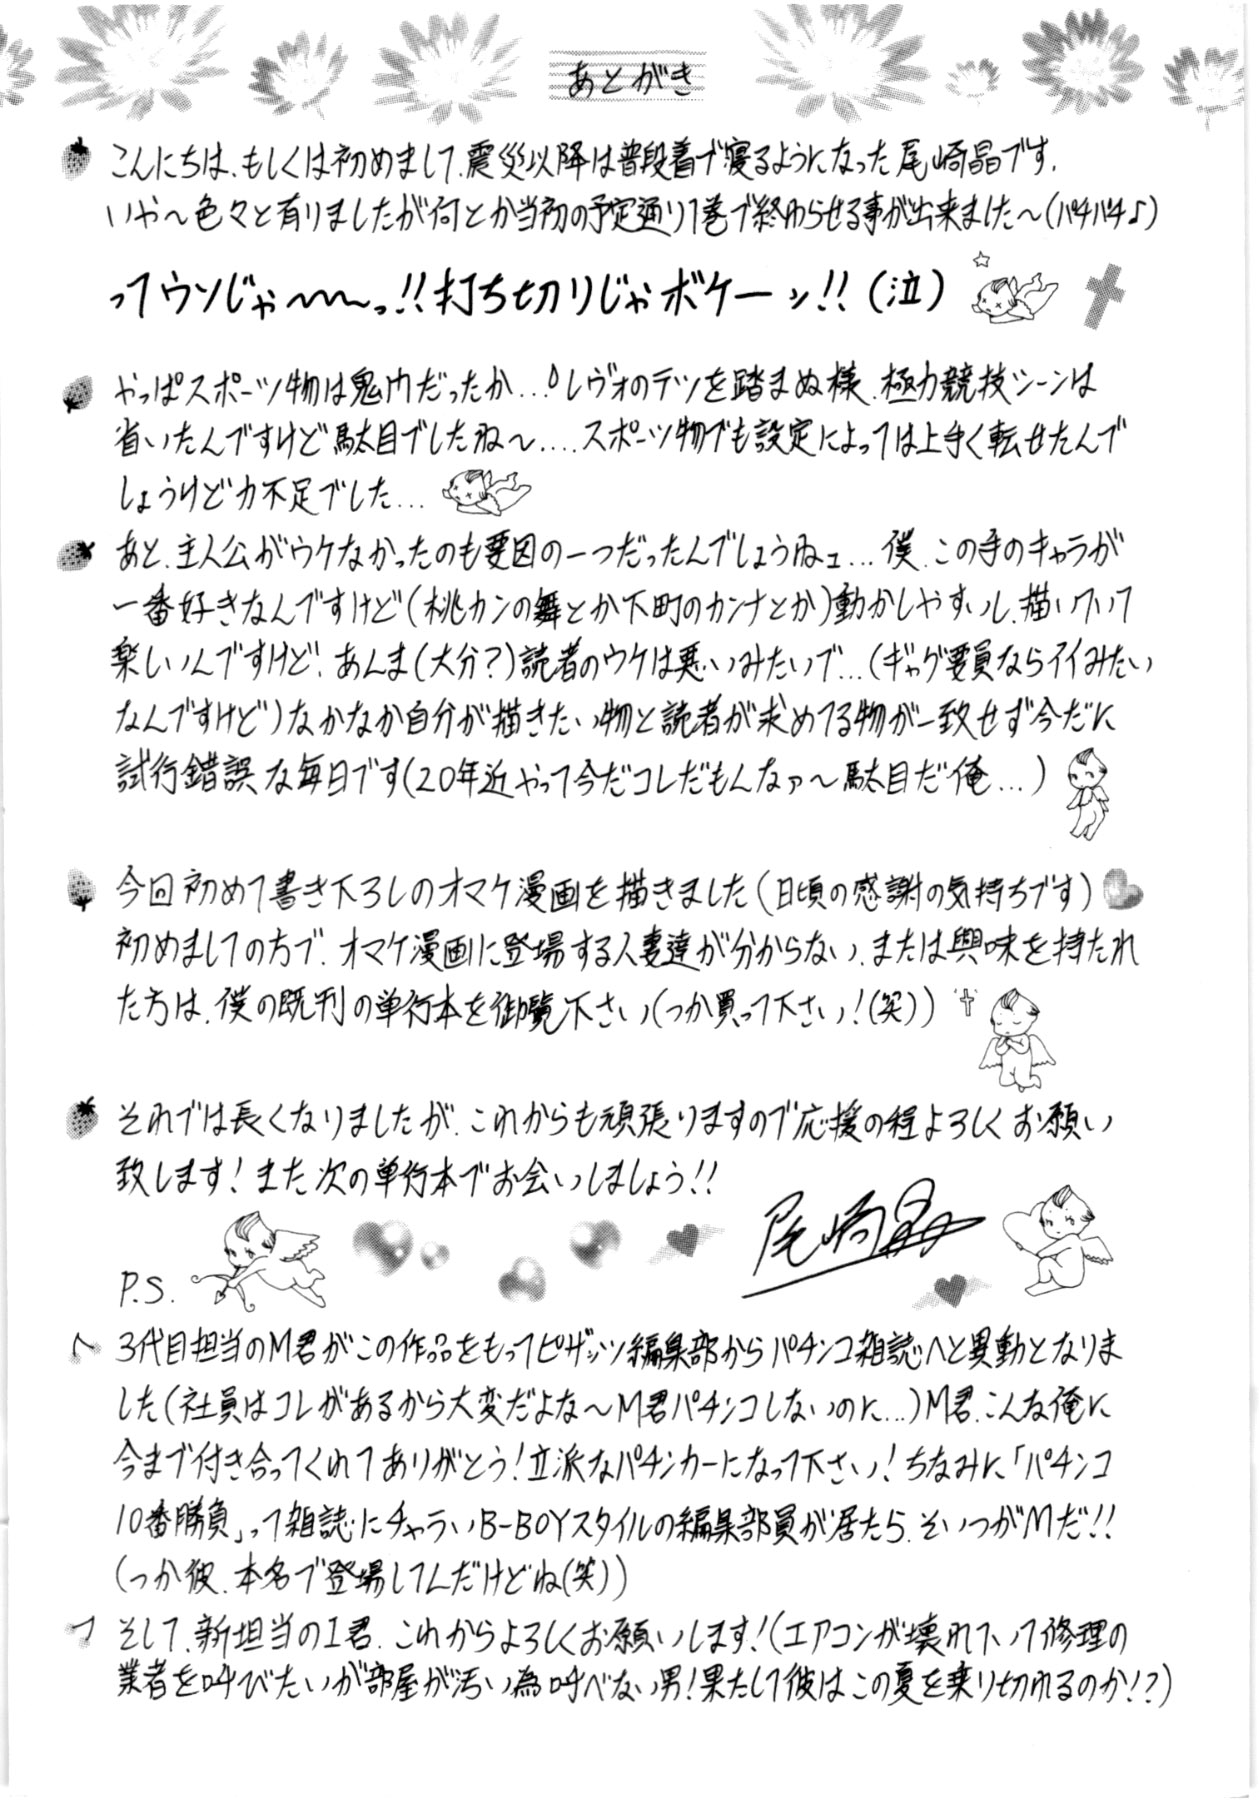 あとがき
こんにちは、もしくは初めまして、震災以降は普段着で寝るようになった尾崎晶です。
いや～色々と有りましたが何とか当初の予定通り1巻で終わらせる事が出来ました～(パチパチ♪)
ってウソじゃ～～～っ!!打ち切りじゃボケーッ!!(泣)
やっぱスポーツ物は鬼門だったか…レヴォのテツを踏まぬ様、極力競技シーンは
省いたんですけど駄目でしたね～….スポーツ物でも設定によっては上手く転せたんで
しょうけど力不足でした…
あと、主人公がウケなかったのも要因の一つだったんでしょうねェ…僕、この手のキャラが
一番好きなんですけど(桃カンの舞とか下町のカンナとか)動かしやすいし、描いていて
楽しいんですけど、あんま(大分?)読者のウケは悪いみたいで…(ギャグ要員ならイイみたい
なんですけど)なかなか自分が描きたい物と読者が求めてる物が一致せず今だに
試行錯誤な毎日です(20年近やって今だコレだもんなァ～駄目だ俺…)
今回初めて書き下ろしのオマケ漫画を描きました(日頃の感謝の気持ちです)
初めましての方で、オマケ漫画に登場する人妻達が分からない、または興味を持たれ
た方は、僕の既刊の単行本を御覧下さい(つか買って下さい!(笑))
それでは長くなりましたが、これからも頑張りますので応援の程よろしくお願い
致します!また次の単行本でお会いしましょう!!
尾崎晶
P.S.
3代目担当のM君がこの作品をもってピザッツ編集部からパチンコ雑誌へと異動となりま
した(社員はコレがあるから大変だよな～M君パチンコしないのに…)M君、こんな俺に
今まで付き合ってくれてありがとう!立派なパチンカーになって下さい!ちなみに「パチンコ
10番勝負」って雑誌にチャラいB-BOYスタイルの編集部員が居たら、そいつがMだ!!
(つか彼、本名で登場してんだけどね(笑))
そして、新担当のI君、これからよろしくお願いします!(エアコンが壊れていて修理の
業者を呼びたいが部屋が汚い為呼べない男!果たして彼はこの夏を乗り切れるのか!?)